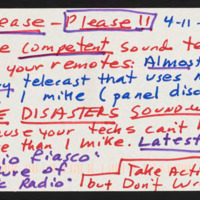 ease - Please!! 4-11-
e competent sound te
your remotes. Almost
y telecast that uses m
1 mike (panel disc
e DISASTERS sound-w
use your techs can't
e than 1 mike. Latest
io fiasco:
ure of Take Acti
c Radio: but Don't Wr